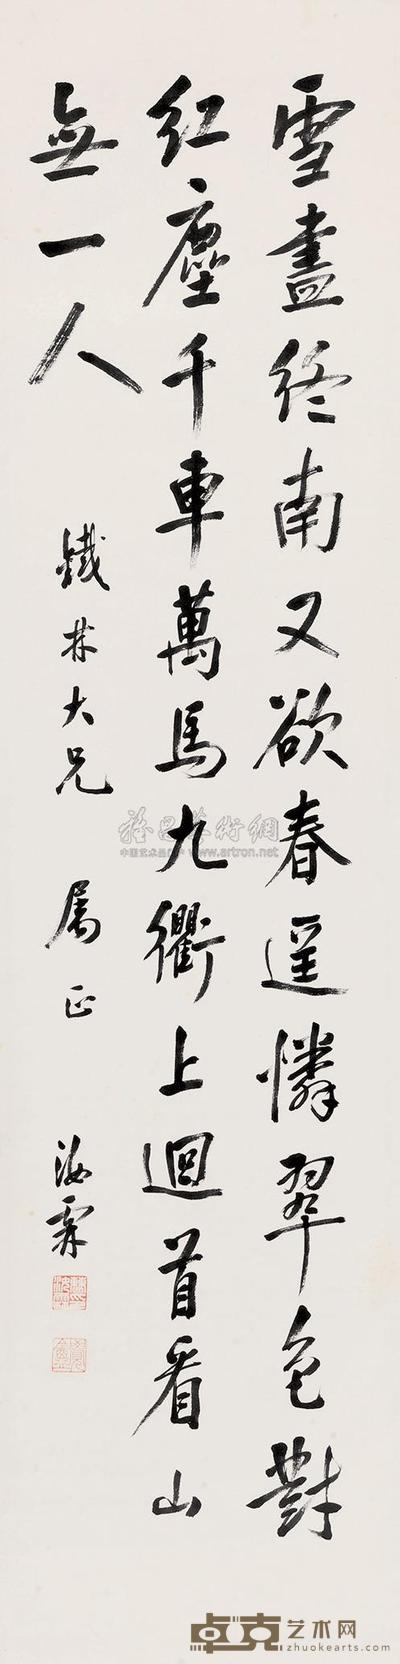 雪盡終南又欲春遥憐翠色對
紅塵千車萬馬九衢上迴首看山
無一人
鐵林大兄 属正 汝霖
雅昌艺術網
中国艺术品门户 www.artron.net
卓克艺术网
zhuokearts.com